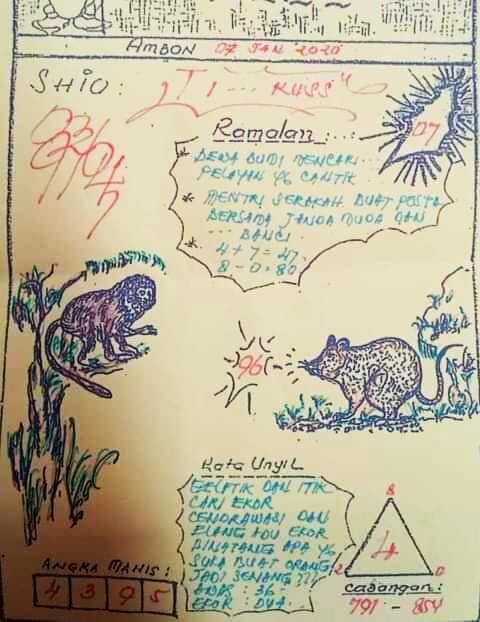 AMBON 07 JAN 2020
SHIO: TI... KUSS"
Ramalan:...
07
* DEWA BUDI MENCARI...
PELAYAN YG CANTIK
* MENTRI SERAKAH BUAT PESTA
BERSAMA JANDA MUDA DAN
BANCI
* 4 + 7 = 47.
8 - 0. 80
96
Kata UnyiL
GELATIK DAN ITIK
CARI EKOR
CENDRAWASI DAN
ELANG ADU EKOR
BINATANG APA YG
SUKA BUAT ORANG
JADI SENANG ???
ANGK : 36
EKOR : DUA.
8
4
2 0
ANGKA MANIS:
4 3 9 5
CADANGAN:
791 - 854